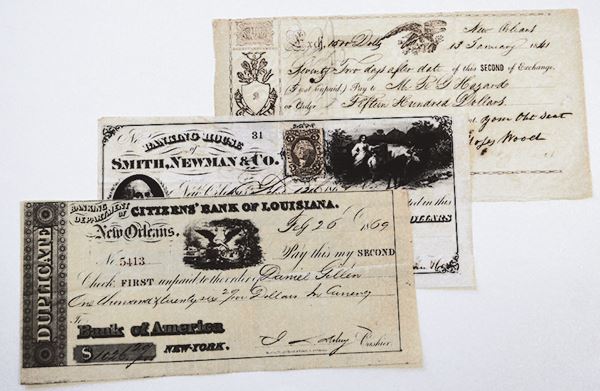 New Orleans
Exch. 1500 Dolls
13 January 1841
Seventy Two days after date of this SECOND of Exchange.
(First Unpaid) Pay to Mr
Hazard
or Order Fifteen Hundred Dollars
your Obt
Wood
31
BANKING HOUSE
of
SMITH, NEWMAN & CO.
New Orleans
in this
DOLLARS
DUPLICATE
BANKING DEPARTMENT of CITIZENS' BANK OF LOUISIANA.
New Orleans. Feby 26 1869
No 5413
Pay this my SECOND
Check FIRST unpaid to the order of Daniel
One thousand & twenty six Dollars In Currency
To
Bank of America
$
NEW-YORK.
Cashier